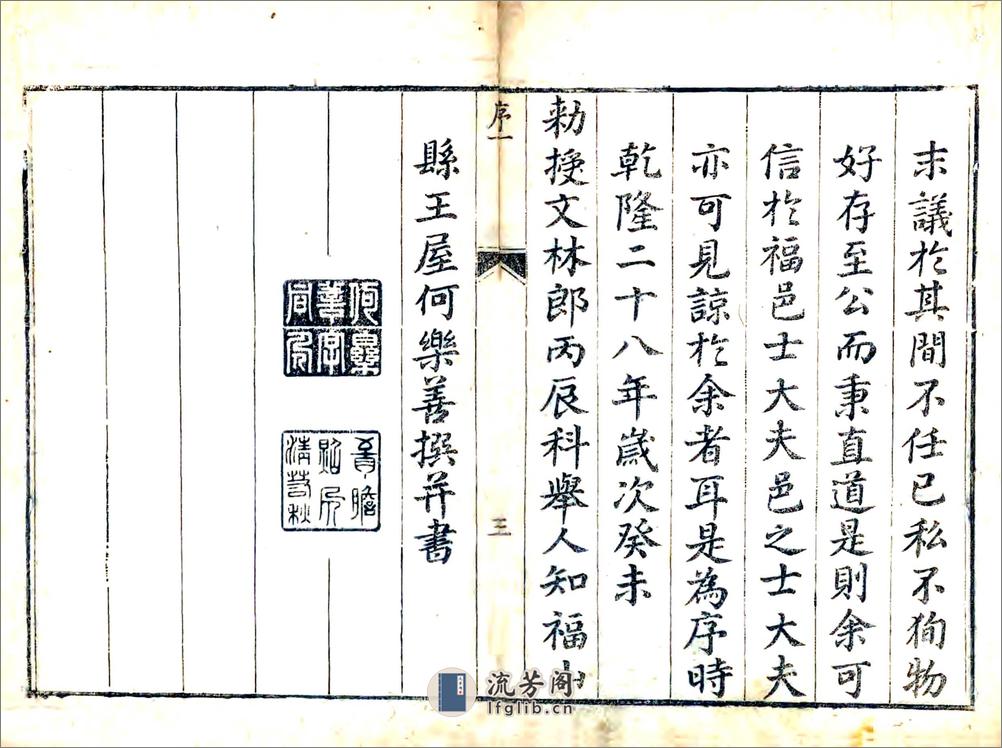 末議於其間不任己私不狥物
好存至公而秉直道是則余可
信於福邑士大夫邑之士大夫
亦可見諒於余者耳是為序時
乾隆二十八年歲次癸未
勅授文林郎丙辰科舉人知福山
縣王屋何樂善撰并書
序一
三
流芳阁
lfglib.cn